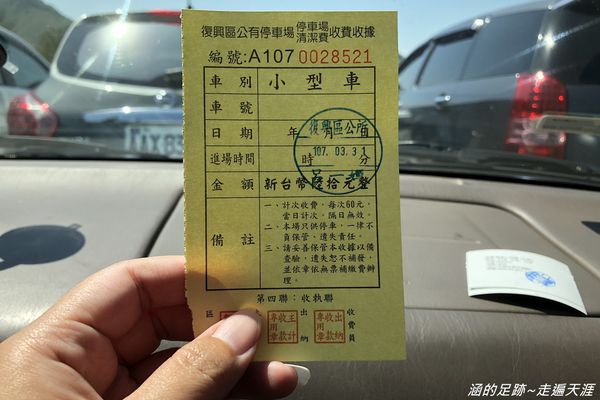 復興區公有停車場 停車場清潔費 收費收據
編號:A107 0028521
車別 小型車
車號
日期 年 月 日
復興區公所
107.03.31
進場時間 時 分
金額 新台幣陸拾元整
備註
一、計次收費,每次60元,
當日計次,隔日無效。
二、本場只供停車,一律不
負保管、遺失責任。
三、請妥善保管本收據以備
查驗,遺失恕不補發,
並依章依無票補繳費辦
理。
第四聯:收執聯
區
出納
收費員
主計收款專用章
出納收款專用章
涵的足跡~走遍天涯